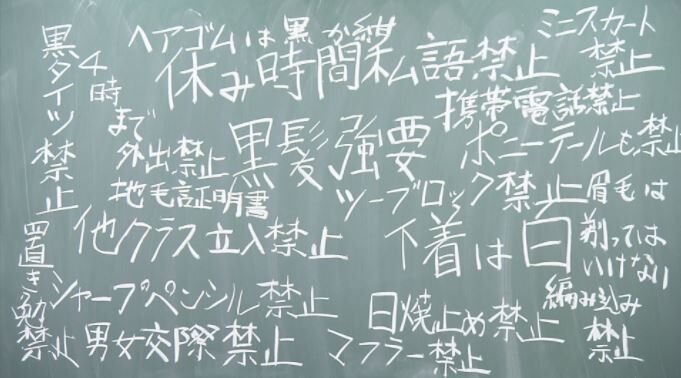 黒タイツ禁止
4時まで外出禁止
ヘアゴムは黒か紺
休み時間私語禁止
ミニスカート禁止
携帯電話禁止
黒髪強要
ポニーテールも禁止
地毛証明書
ツーブロック禁止
眉毛は剃ってはいけない
他クラス立入禁止
下着は白
置き勉禁止
シャープペンシル禁止
日焼止め禁止
編み込み禁止
男女交際禁止
マフラー禁止